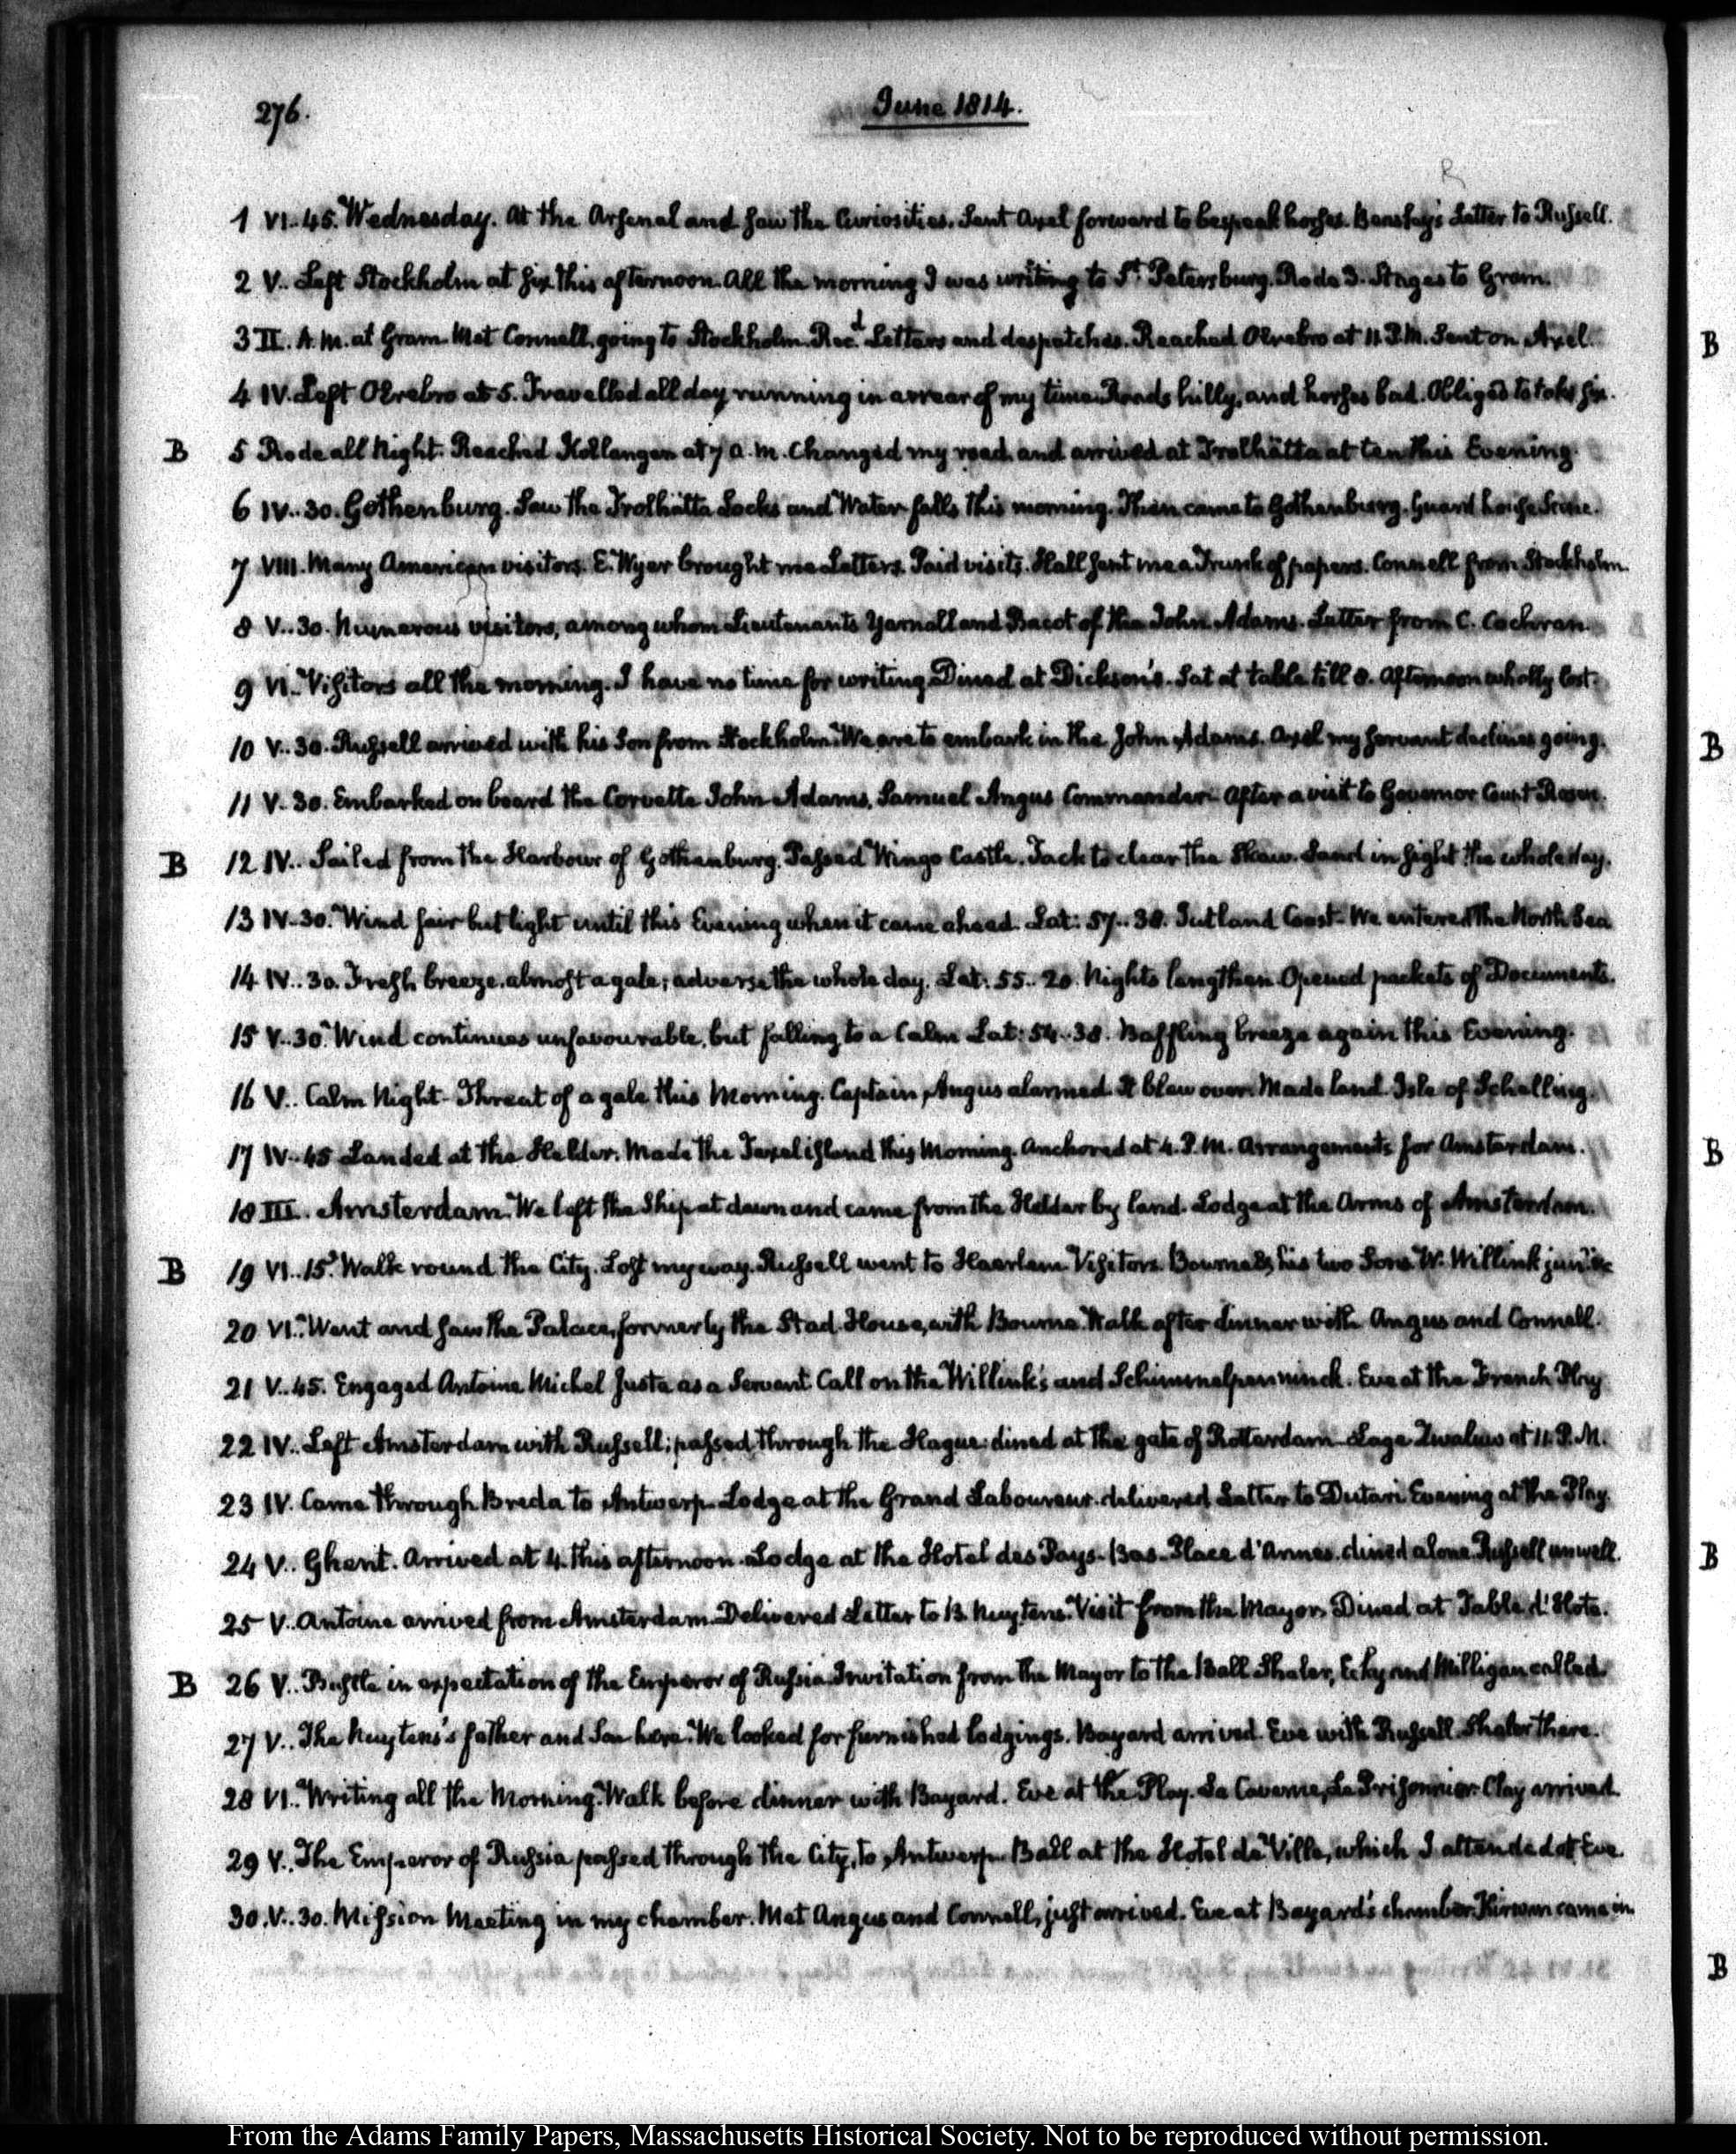 276.
June 1814.
1 VI..45. Wednesday. At the Arsenal and saw the Curiosities. Sent Axel forward to bespeak horses. Letter to Russell.
2 V.. Left Stockholm at six this afternoon. All the morning I was writing to St. Petersburg. Rode 3. Stages to Gran.
3 II. A.M. at Gran. Met Connell, going to Stockholm. Recd. Letters and despatches. Reached Örebro at 11. P.M. Sent on Axel.
4 IV. Left Örebro at 5. Travelled all day running in arrear of my time. Roads hilly, and horses bad. Obliged to take six.
B 5 Rode all Night. Reached at 7 A.M. Changed my road and arrived at Trolhätta at ten this Evening.
6 IV..30. Gothenburg. Saw the Trolhätta Locks and Water falls this morning. Then came to Gothenburg. Guard house Scene.
7 VIII. Many American visitors. E. Wyer brought me Letters. Paid visits. Hall sent me a Trunk of papers. Connell from Stockholm.
8 V..30. Numerous visitors, among whom Lieutenants Yarnall and Bacot of the John Adams. Letter from C. Cochran.
9 VI.. Visitors all the morning. I have no time for writing. Dined at Dickson's. Sat at table till 8. Afternoon wholly lost.
10 V..30. Russell arrived with his Son from Stockholm. We are to embark in the John Adams. Axel my servant declines going.
11 V..30. Embarked on board the Corvette John Adams, Samuel Angus Commander. After a visit to Governor Count Rosen.
B 12 IV.. Sailed from the Harbour of Gothenburg. Passed Wingo Castle. Tack to clear the Skaw. Land in sight the whole day.
13 IV..30. Wind fair but light until this Evening when it came ahead. Lat: 57..38. Jutland Coast. We entered the North Sea
14 IV..30. Fresh breeze, almost a gale; adverse the whole day. Lat: 55..20. Nights lengthen. Opened packets of Documents.
15 V..30. Wind continues unfavourable, but falling to a Calm. Lat: 54..38. Baffling breeze again this Evening.
16 V.. Calm Night. Threat of a gale this Morning. Captain Angus alarmed. It blew over. Made land. Isle of Schelling.
17 IV..45 Landed at the Helder. Made the Texel island this Morning. Anchored at 4. P.M. Arrangements for Amsterdam.
18 III. Amsterdam. We left the Ship at dawn and came from the Helder by land. Lodge at the Arms of Amsterdam.
B 19 VI..15. Walk round the City. Lost my way. Russell went to Haarlem. Visitors. Bourne & his two Sons. W. Willink junr. &c
20 VI.. Went and saw the Palace, formerly the Stad-House, with Bourne. Walk after dinner with Angus and Connell.
21 V..45. Engaged Antoine Michel Juste as a Servant. Call on the Willink's and Schimmelpenninck. Eve at the French Play
22 IV.. Left Amsterdam with Russell; passed through the Hague: dined at the gate of Rotterdam. Lage Zwaluw at 11. P.M.
23 IV. Came through Breda to Antwerp. Lodge at the Grand Laboureur. delivered Letter to Dutari. Evening at the Play.
24 V.. Ghent. Arrived at 4. this afternoon. Lodge at the Hotel des Pays-Bas. Place d'Armes. dined alone. Russell unwell.
25 V. Antoine arrived from Amsterdam. Delivered Letter to B. Nuytens. Visit from the Mayor. Dined at Table d'Hote.
B 26 V.. Bustle in expectation of the Emperor of Russia. Invitation from the Mayor to the Ball. Shaler, and Milligan called.
27 V.. The Nuytens's father and Son here. We looked for furnished lodgings. Bayard arrived. Eve with Russell. Shaler there.
28 VI.. Writing all the Morning. Walk before dinner with Bayard. Eve at the Play. La Caverne, Le Prisonnier. Clay arrived.
29 V.. The Emperor of Russia passed through the City, to Antwerp. Ball at the Hotel de Ville, which I attended at Eve.
30. V..30. Mission Meeting in my chamber. Met Angus and Connell, just arrived. Eve at Bayard's chamber. Kirwan came in.
B
B
B
B
B
From the Adams Family Papers, Massachusetts Historical Society. Not to be reproduced without permission.